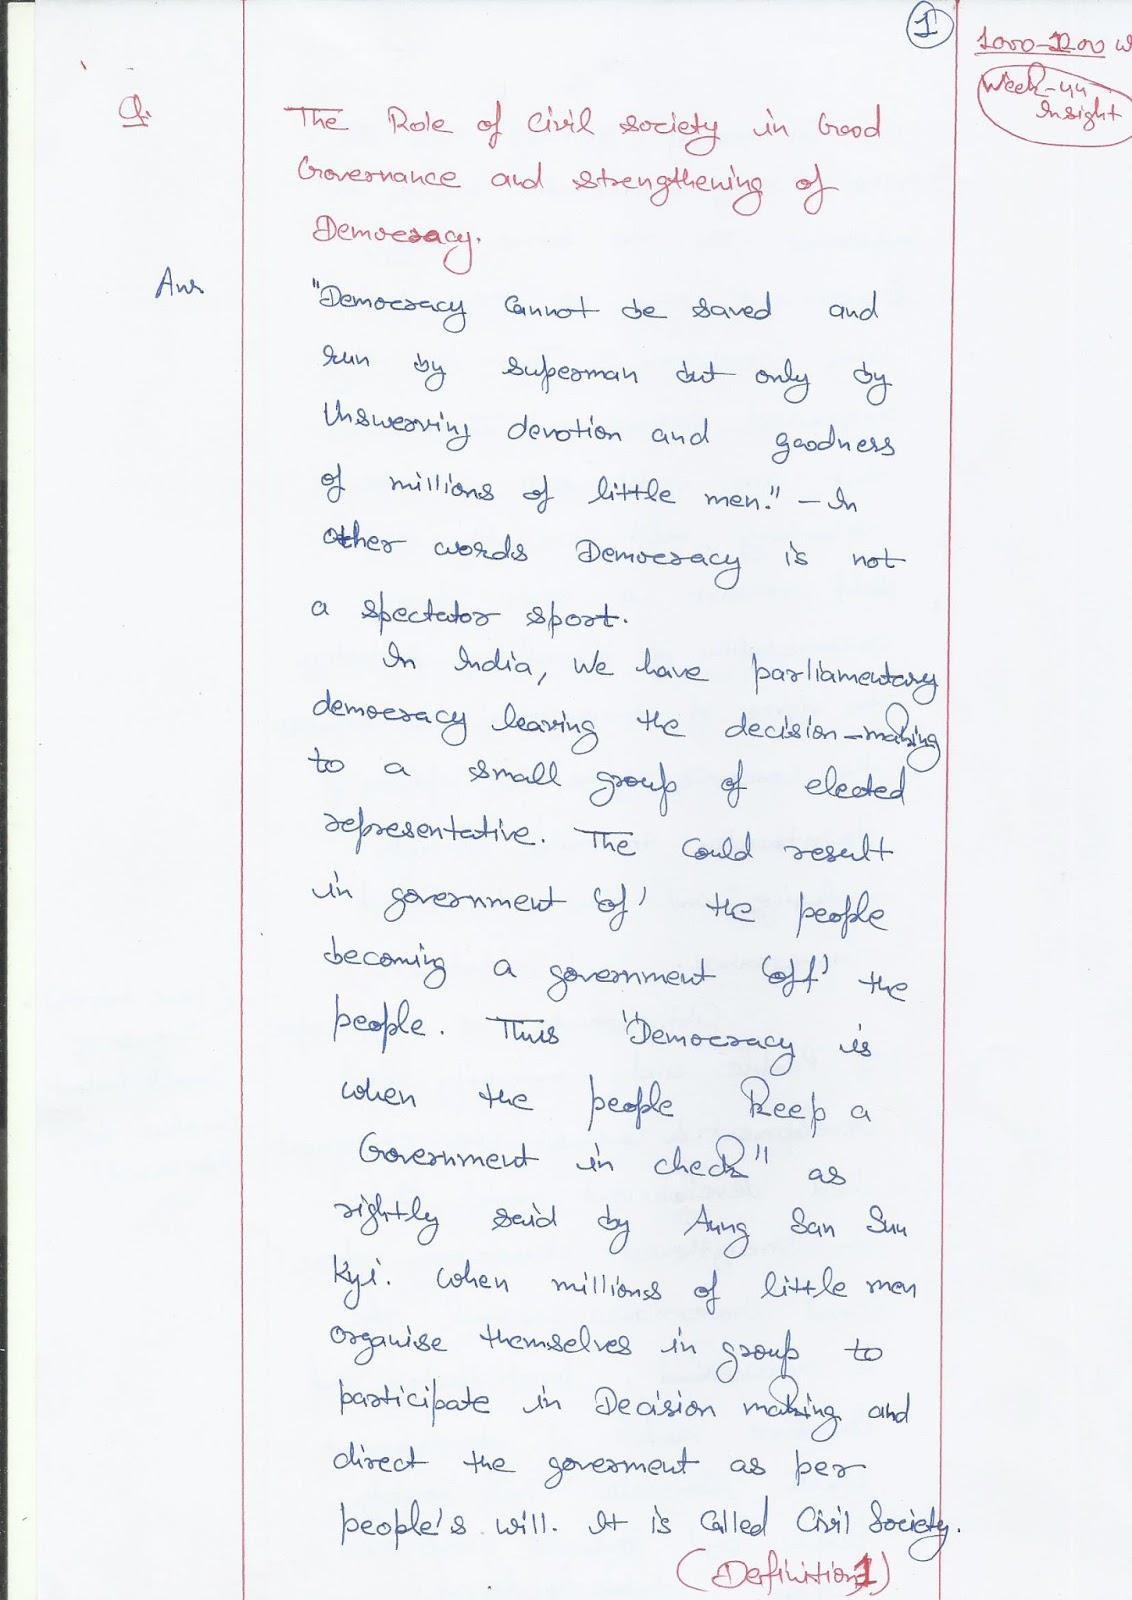 1
1000-1200 w
Week-44
Insight
Q.
The Role of Civil Society in Good
Governance and strengthening of
Democracy.
Ans
"Democracy cannot be saved and
run by superman but only by
Unswerving devotion and goodness
of millions of little men." - In
other words Democracy is not
a spectator sport.
In India, we have parliamentary
democracy leaving the decision-making
to a small group of elected
representative. The could result
in government 'of' the people
becoming a government 'off' the
people. Thus "Democracy is
when the people keep a
Government in check" as
rightly said by Aung San Suu
Kyi. When millions of little men
organise themselves in group to
participate in Decision making and
direct the goverment as per
people's will. It is called Civil Society.
(Definition 1)